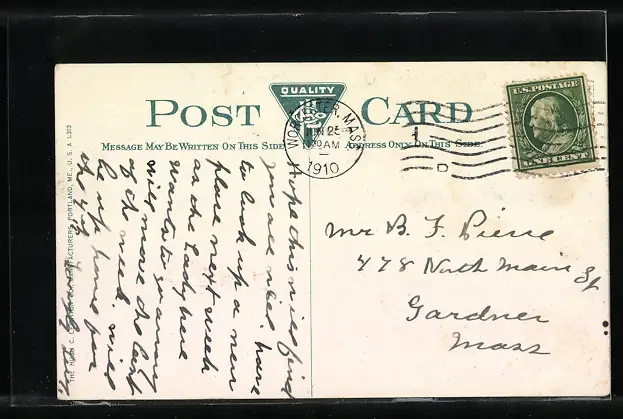 POST CARD
QUALITY
MESSAGE MAY BE WRITTEN ON THIS SIDE
ADDRESS ONLY ON THIS SIDE.
WORCESTER, MASS.
25
30 AM
1910
1
D
U.S. POSTAGE
ONE CENT
Hope this will find
you all well have
to look up a new
place next week
as the lady here
wants to go away
will move the last
of the week will
be up home for
THE HUGH C. LEIGHTON CO., MANUFACTURERS, PORTLAND, ME., U. S. A. L313
Mr B. F Pierce
478 North Main St
Gardner
Mass